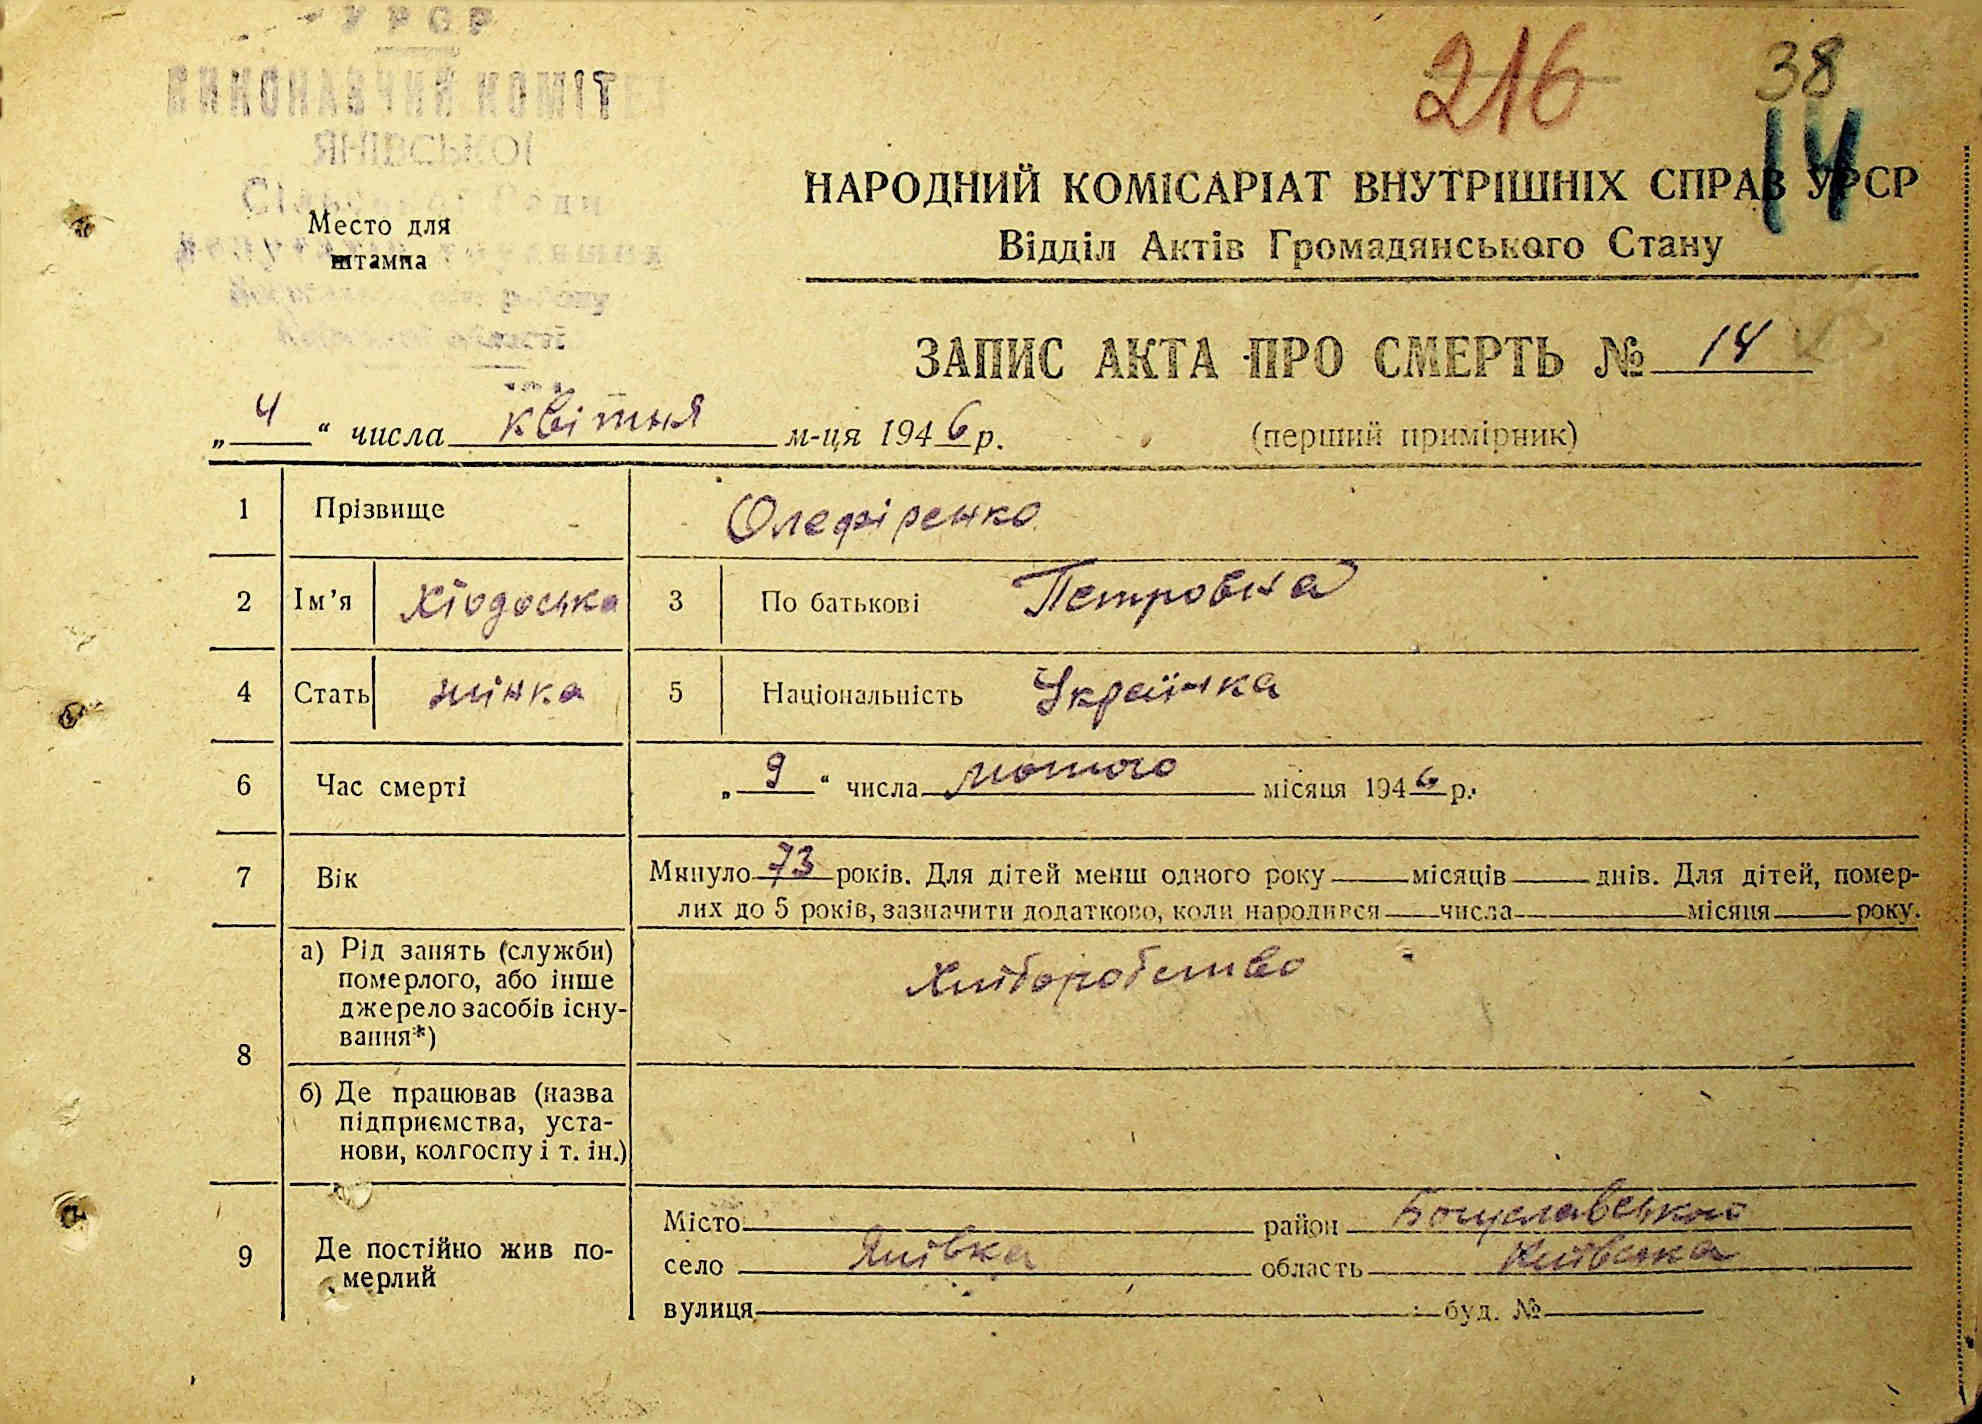 УРСР
ВИКОНАВЧИЙ КОМІТЕТ
ЯНІВСЬКОЇ
Сільської Ради
депутатів трудящих
району
області
216
38
14
Место для
штампа
НАРОДНИЙ КОМІСАРІАТ ВНУТРІШНІХ СПРАВ УРСР
Відділ Актів Громадянського Стану
ЗАПИС АКТА ПРО СМЕРТЬ № 14
„ 4 “ числа квітня м-ця 1946 р.
(перший примірник)
1 Прізвище Олефіренко
2 Ім’я Хіодоська 3 По батькові Петровна
4 Стать жінка 5 Національність Українка
6 Час смерті „ 9 “ числа лютого місяця 1946 р.
7 Вік Минуло 73 років. Для дітей менш одного року місяців днів. Для дітей, помер-
лих до 5 років, зазначити додатково, коли народився числа місяця року.
8 а) Рід занять (служби)
померлого, або інше
джерело засобів існу-
вання*)
Хліборобство
б) Де працював (назва
підприємства, уста-
нови, колгоспу і т. ін.)
9 Де постійно жив по-
мерлий
Місто район Богуславського
село Янівка область Київська
вулиця буд. №